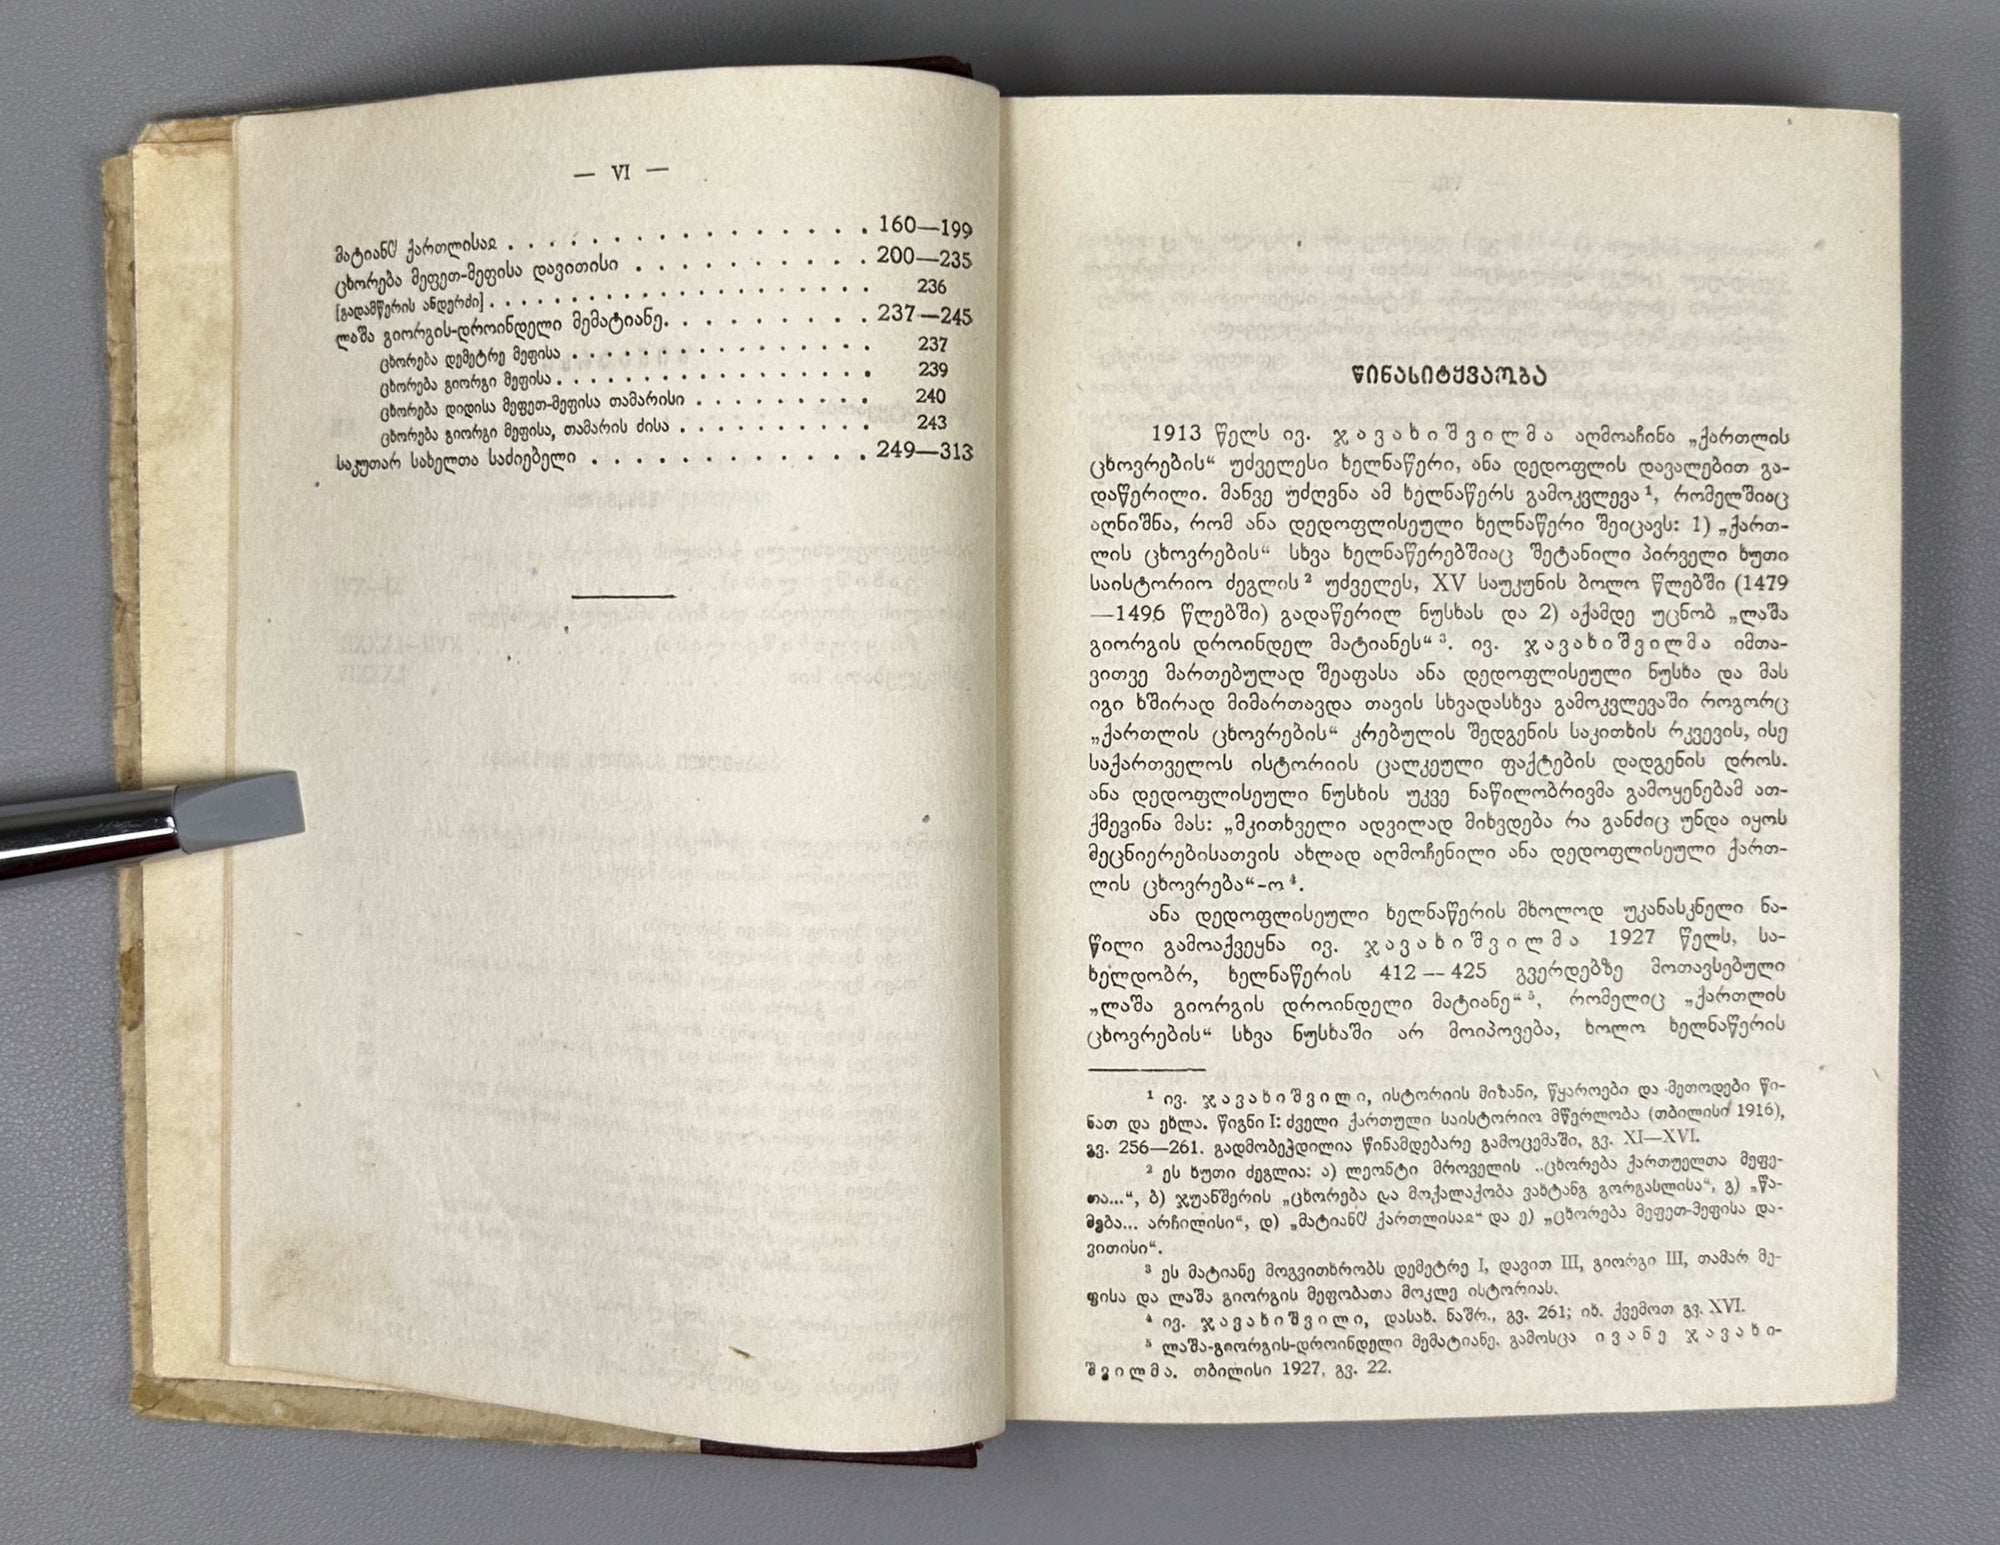 — VI —
მატიანჱ ქართლისაჲ . . . . . . . . . . . . . . . . 160—199
ცხორება მეფეთ-მეფისა დავითისი . . . . . . . . . . 200—235
[გადამწერის ანდერძი] . . . . . . . . . . . . . . . . 236
ლაშა გიორგის-დროინდელი მემატიანე. . . . . . . . . 237—245
ცხორება დემეტრე მეფისა . . . . . . . . . . . . . 237
ცხორება გიორგი მეფისა . . . . . . . . . . . . . . 239
ცხორება დიდისა მეფეთ-მეფისა თამარისი . . . . . . . . 240
ცხორება გიორგი მეფისა, თამარის ძისა . . . . . . . . . 243
საკუთარ სახელთა საძიებელი . . . . . . . . . . . . 249—313
წინასიტყვაობა
1913 წელს ივ. ჯავახიშვილმა აღმოაჩინა „ქართლის
ცხოვრების“ უძველესი ხელნაწერი, ანა დედოფლის დავალებით გა-
დაწერილი. მანვე უძღვნა ამ ხელნაწერს გამოკვლევა¹, რომელშიაც
აღნიშნა, რომ ანა დედოფლისეული ხელნაწერი შეიცავს: 1) „ქართ-
ლის ცხოვრების“ სხვა ხელნაწერებშიაც შეტანილი პირველი ხუთი
საისტორიო ძეგლის² უძველეს, XV საუკუნის ბოლო წლებში (1479
—1496 წლებში) გადაწერილ ნუსხას და 2) აქამდე უცნობ „ლაშა
გიორგის დროინდელ მატიანეს“³. ივ. ჯავახიშვილმა იმთა-
ვითვე მართებულად შეაფასა ანა დედოფლისეული ნუსხა და მას
იგი ხშირად მიმართავდა თავის სხვადასხვა გამოკვლევაში როგორც
„ქართლის ცხოვრების“ კრებულის შედგენის საკითხის რკვევის, ისე
საქართველოს ისტორიის ცალკეული ფაქტების დადგენის დროს.
ანა დედოფლისეული ნუსხის უკვე ნაწილობრივმა გამოყენებამ ათ-
ქმევინა მას: „მკითხველი ადვილად მიხვდება რა განძიც უნდა იყოს
მეცნიერებისათვის ახლად აღმოჩენილი ანა დედოფლისეული ქართ-
ლის ცხოვრება“-ო⁴.
ანა დედოფლისეული ხელნაწერის მხოლოდ უკანასკნელი ნა-
წილი გამოაქვეყნა ივ. ჯავახიშვილმა 1927 წელს, სა-
ხელდობრ, ხელნაწერის 412—425 გვერდებზე მოთავსებული
„ლაშა გიორგის დროინდელი მატიანე“⁵, რომელიც „ქართლის
ცხოვრების“ სხვა ნუსხაში არ მოიპოვება, ხოლო ხელნაწერის
¹ ივ. ჯავახიშვილი, ისტორიის მიზანი, წყაროები და მეთოდები წი-
ნათ და ეხლა. წიგნი I: ძველი ქართული საისტორიო მწერლობა (თბილისი 1916),
გვ. 256—261. გადმობეჭდილია წინამდებარე გამოცემაში, გვ. XI—XVI.
² ეს ხუთი ძეგლია: ა) ლეონტი მროველის „ცხორება ქართუელთა მეფე-
თა...“, ბ) ჯუანშერის „ცხორება და მოქალაქობა ვახტანგ გორგასლისა“, გ) „წა-
მება... არჩილისი“, დ) „მატიანჱ ქართლისაჲ“ და ე) „ცხორება მეფეთ-მეფისა და-
ვითისი“.
³ ეს მატიანე მოგვითხრობს დემეტრე I, დავით III, გიორგი III, თამარ მე-
ფისა და ლაშა გიორგის მეფობათა მოკლე ისტორიას.
⁴ ივ. ჯავახიშვილი, დასახ. ნაშრ., გვ. 261; იხ. ქვემოთ გვ. XVI.
⁵ ლაშა-გიორგის-დროინდელი მემატიანე. გამოსცა ივანე ჯავახი-
შვილმა. თბილისი 1927, გვ. 22.